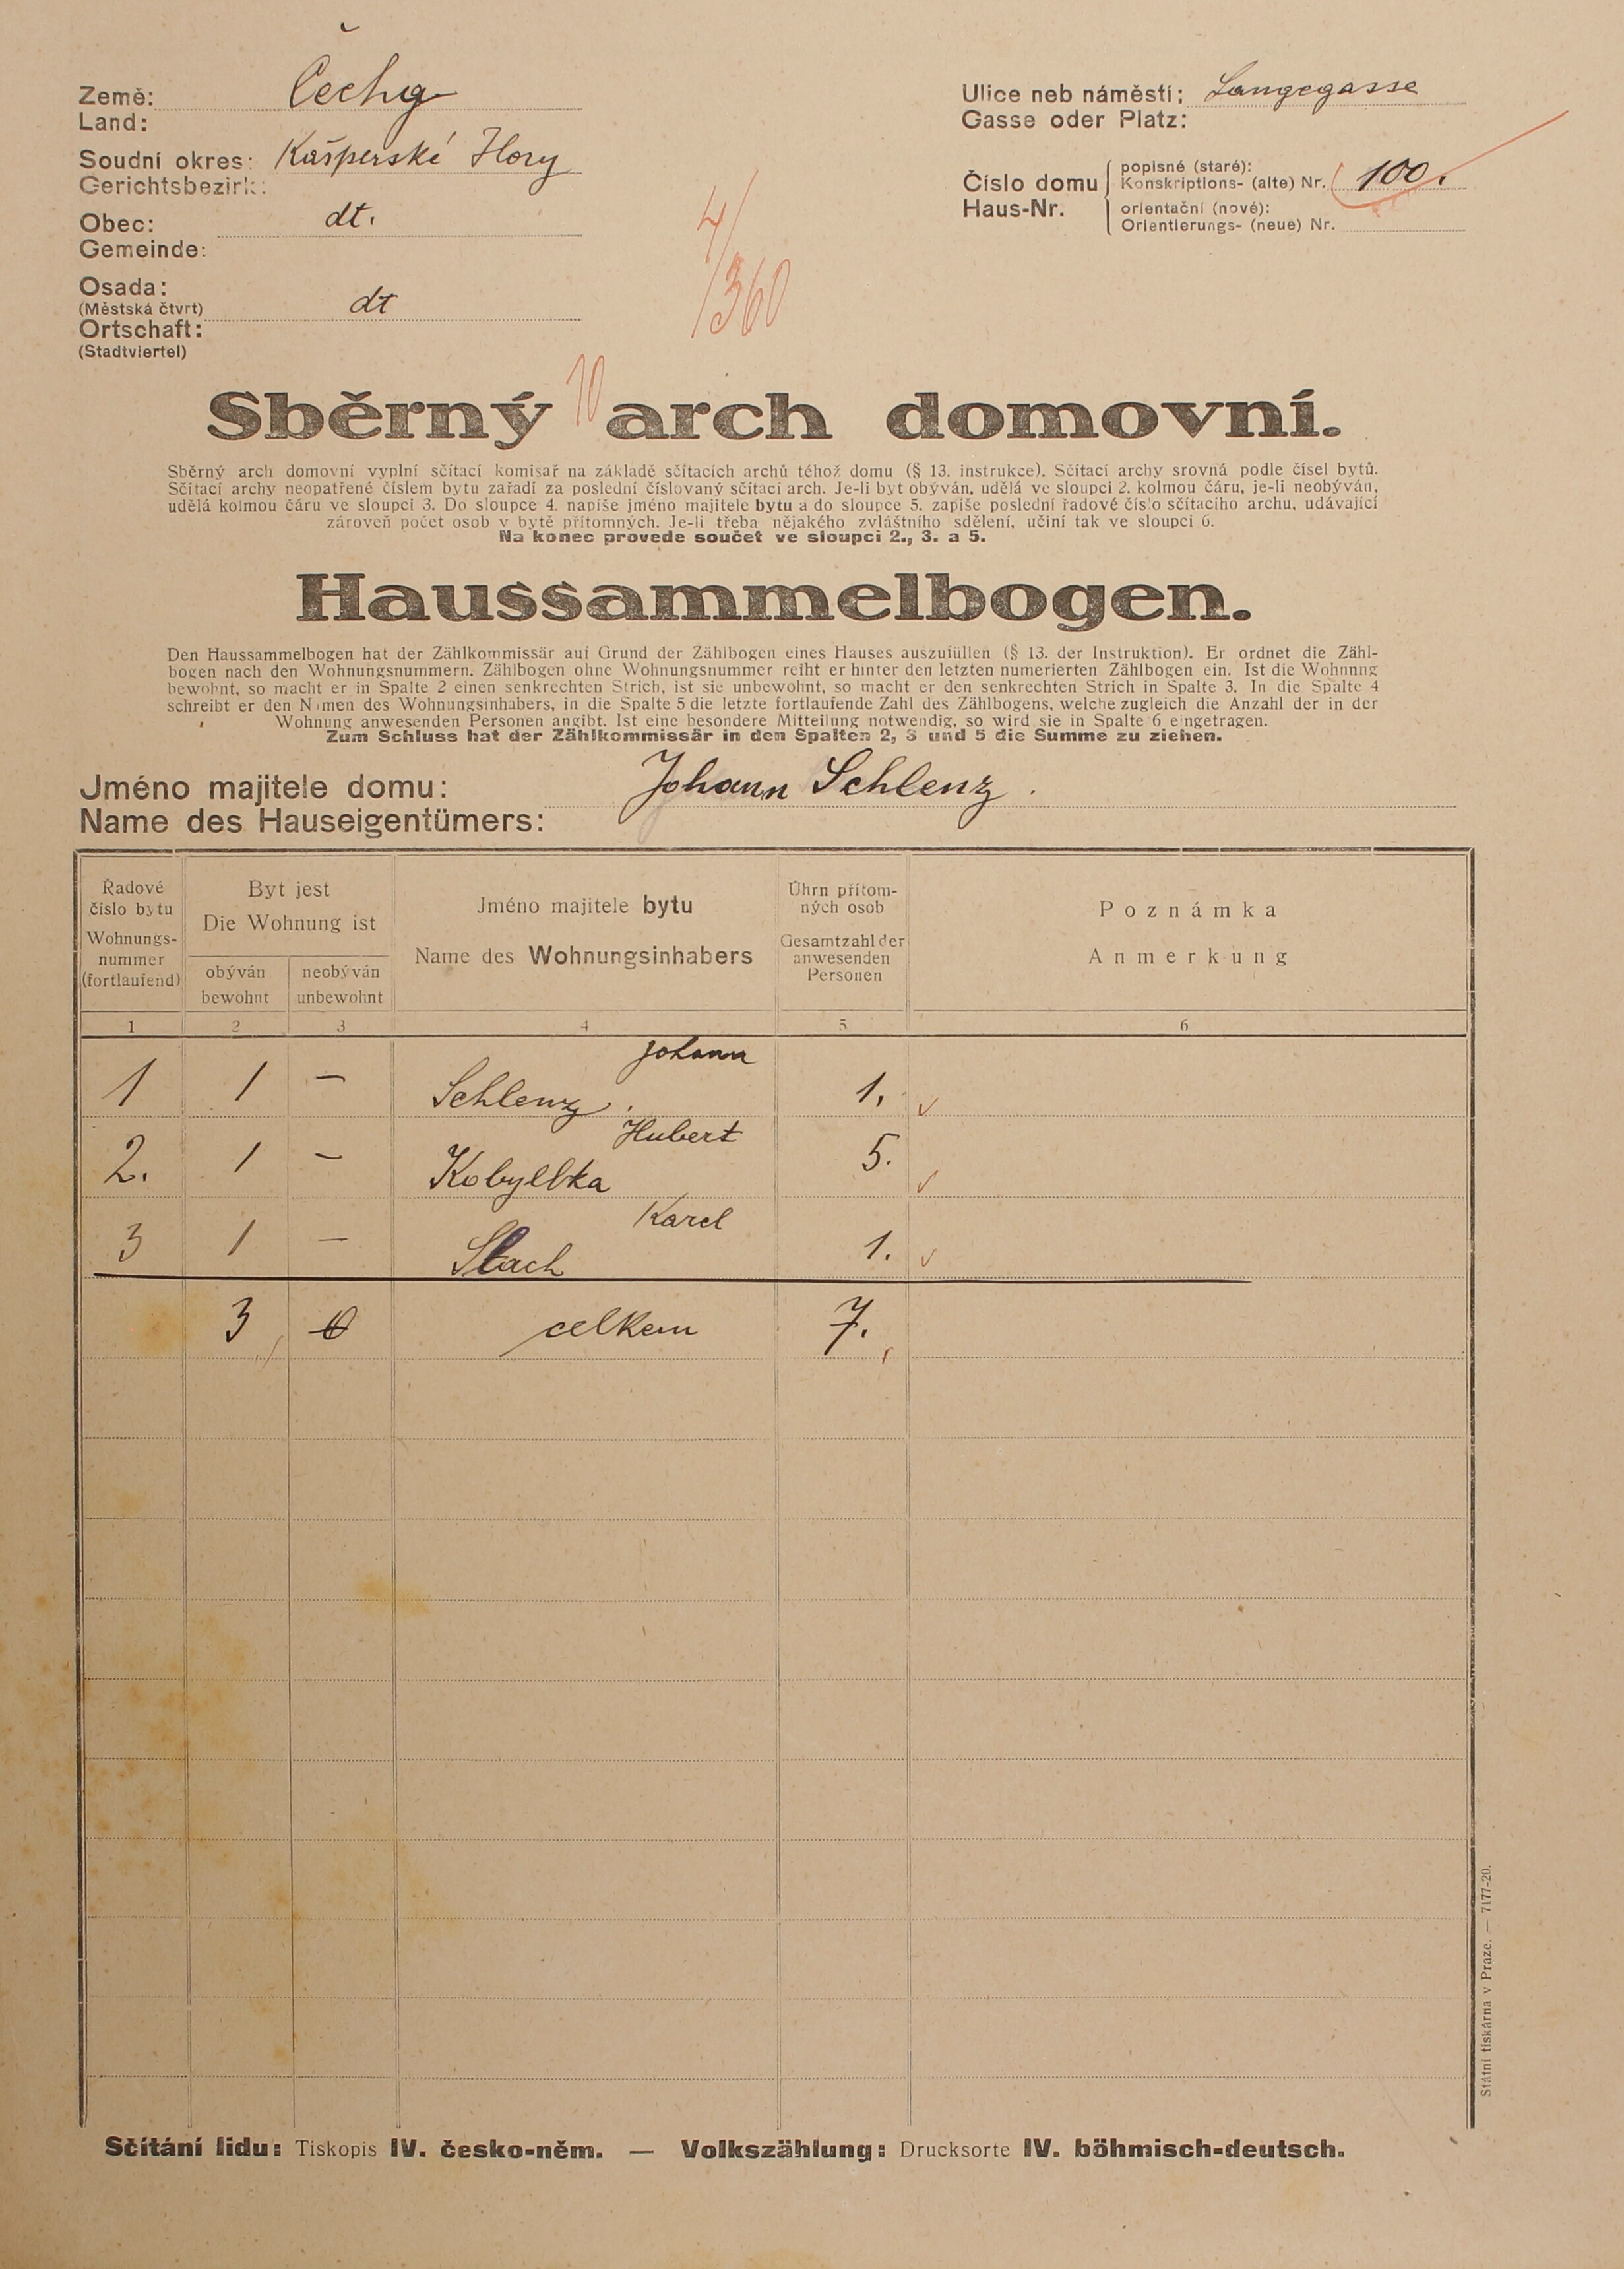 Země: Čechy
Land:
Soudní okres: Kašperské Hory
Gerichtsbezirk:
Obec: dt.
Gemeinde:
Osada:
(Městská čtvrt) dt
Ortschaft:
(Stadtviertel)
Ulice neb náměstí: Langegasse
Gasse oder Platz:
Číslo domu
Haus-Nr.
popisné (staré):
Konskriptions- (alte) Nr. 100.
orientační (nové):
Orientierungs- (neue) Nr.
4/
/360
10
Sběrný arch domovní.
Sběrný arch domovní vyplní sčítací komisař na základě sčítacích archů téhož domu (§ 13. instrukce). Sčítací archy srovná podle čísel bytů.
Sčítací archy neopatřené číslem bytu zařadí za poslední číslovaný sčítací arch. Je-li byt obýván, udělá ve sloupci 2. kolmou čáru, je-li neobýván,
udělá kolmou čáru ve sloupci 3. Do sloupce 4. napíše jméno majitele bytu a do sloupce 5. zapíše poslední řadové číslo sčítacího archu, udávající
zároveň počet osob v bytě přítomných. Je-li třeba nějakého zvláštního sdělení, učiní tak ve sloupci 6.
Na konec provede součet ve sloupci 2., 3. a 5.
Haussammelbogen.
Den Haussammelbogen hat der Zählkommissär auf Grund der Zählbogen eines Hauses auszufüllen (§ 13. der Instruktion). Er ordnet die Zähl-
bogen nach den Wohnungsnummern. Zählbogen ohne Wohnungsnummer reiht er hinter den letzten numerierten Zählbogen ein. Ist die Wohnnng
bewohnt, so macht er in Spalte 2 einen senkrechten Strich, ist sie unbewohnt, so macht er den senkrechten Strich in Spalte 3. In die Spalte 4
schreibt er den Namen des Wohnungsinhabers, in die Spalte 5 die letzte fortlaufende Zahl des Zählbogens, welche zugleich die Anzahl der in der
Wohnung anwesenden Personen angibt. Ist eine besondere Mitteilung notwendig, so wird sie in Spalte 6 eingetragen.
Zum Schluss hat der Zählkommissär in den Spalten 2, 3 und 5 die Summe zu ziehen.
Jméno majitele domu: Johann Schlenz.
Name des Hauseigentümers:
Řadové číslo bytu
Wohnungs-nummer (fortlaufend)
Byt jest
Die Wohnung ist
obýván
bewohnt
neobýván
unbewohnt
Jméno majitele bytu
Name des Wohnungsinhabers
Úhrn přítom-ných osob
Gesamtzahl der anwesenden Personen
Poznámka
Anmerkung
1 2 3 4 5 6
Johann
1 1 – Schlenz. 1. ✓
Hubert
2. 1 – Kobylbka 5. ✓
Karel
3 1 – Slach 1. ✓
3 0 celkem 7.
Státní tiskárna v Praze. — 7177-20.
Sčítání lidu: Tiskopis IV. česko-něm. — Volkszählung: Drucksorte IV. böhmisch-deutsch.